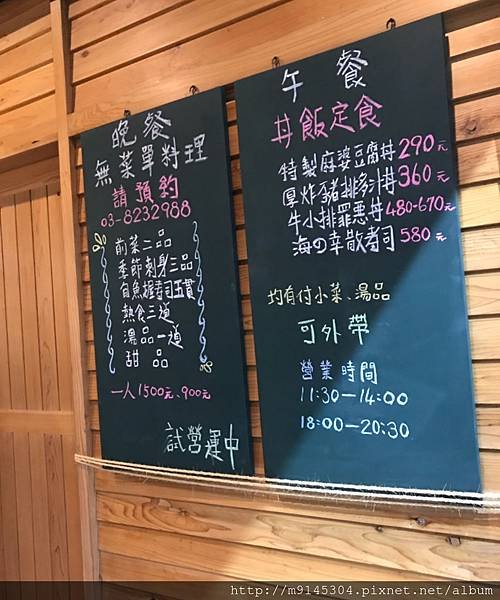 晚餐
無菜單料理
請預約
03-8232988
前菜二品
季節刺身三品
白魚握壽司五貫
熱食三道
湯品一道
甜品
一人1500元、900元
試營運中
午餐
丼飯定食
特製麻婆豆腐丼290元
厚炸豬排多汁丼360元
牛小排罪惡丼480-670元
海の幸散壽司580元
均有付小菜、湯品
可外帶
營業時間
11:30-14:00
18:00-20:30
http://m9145304.pixnet.net/album